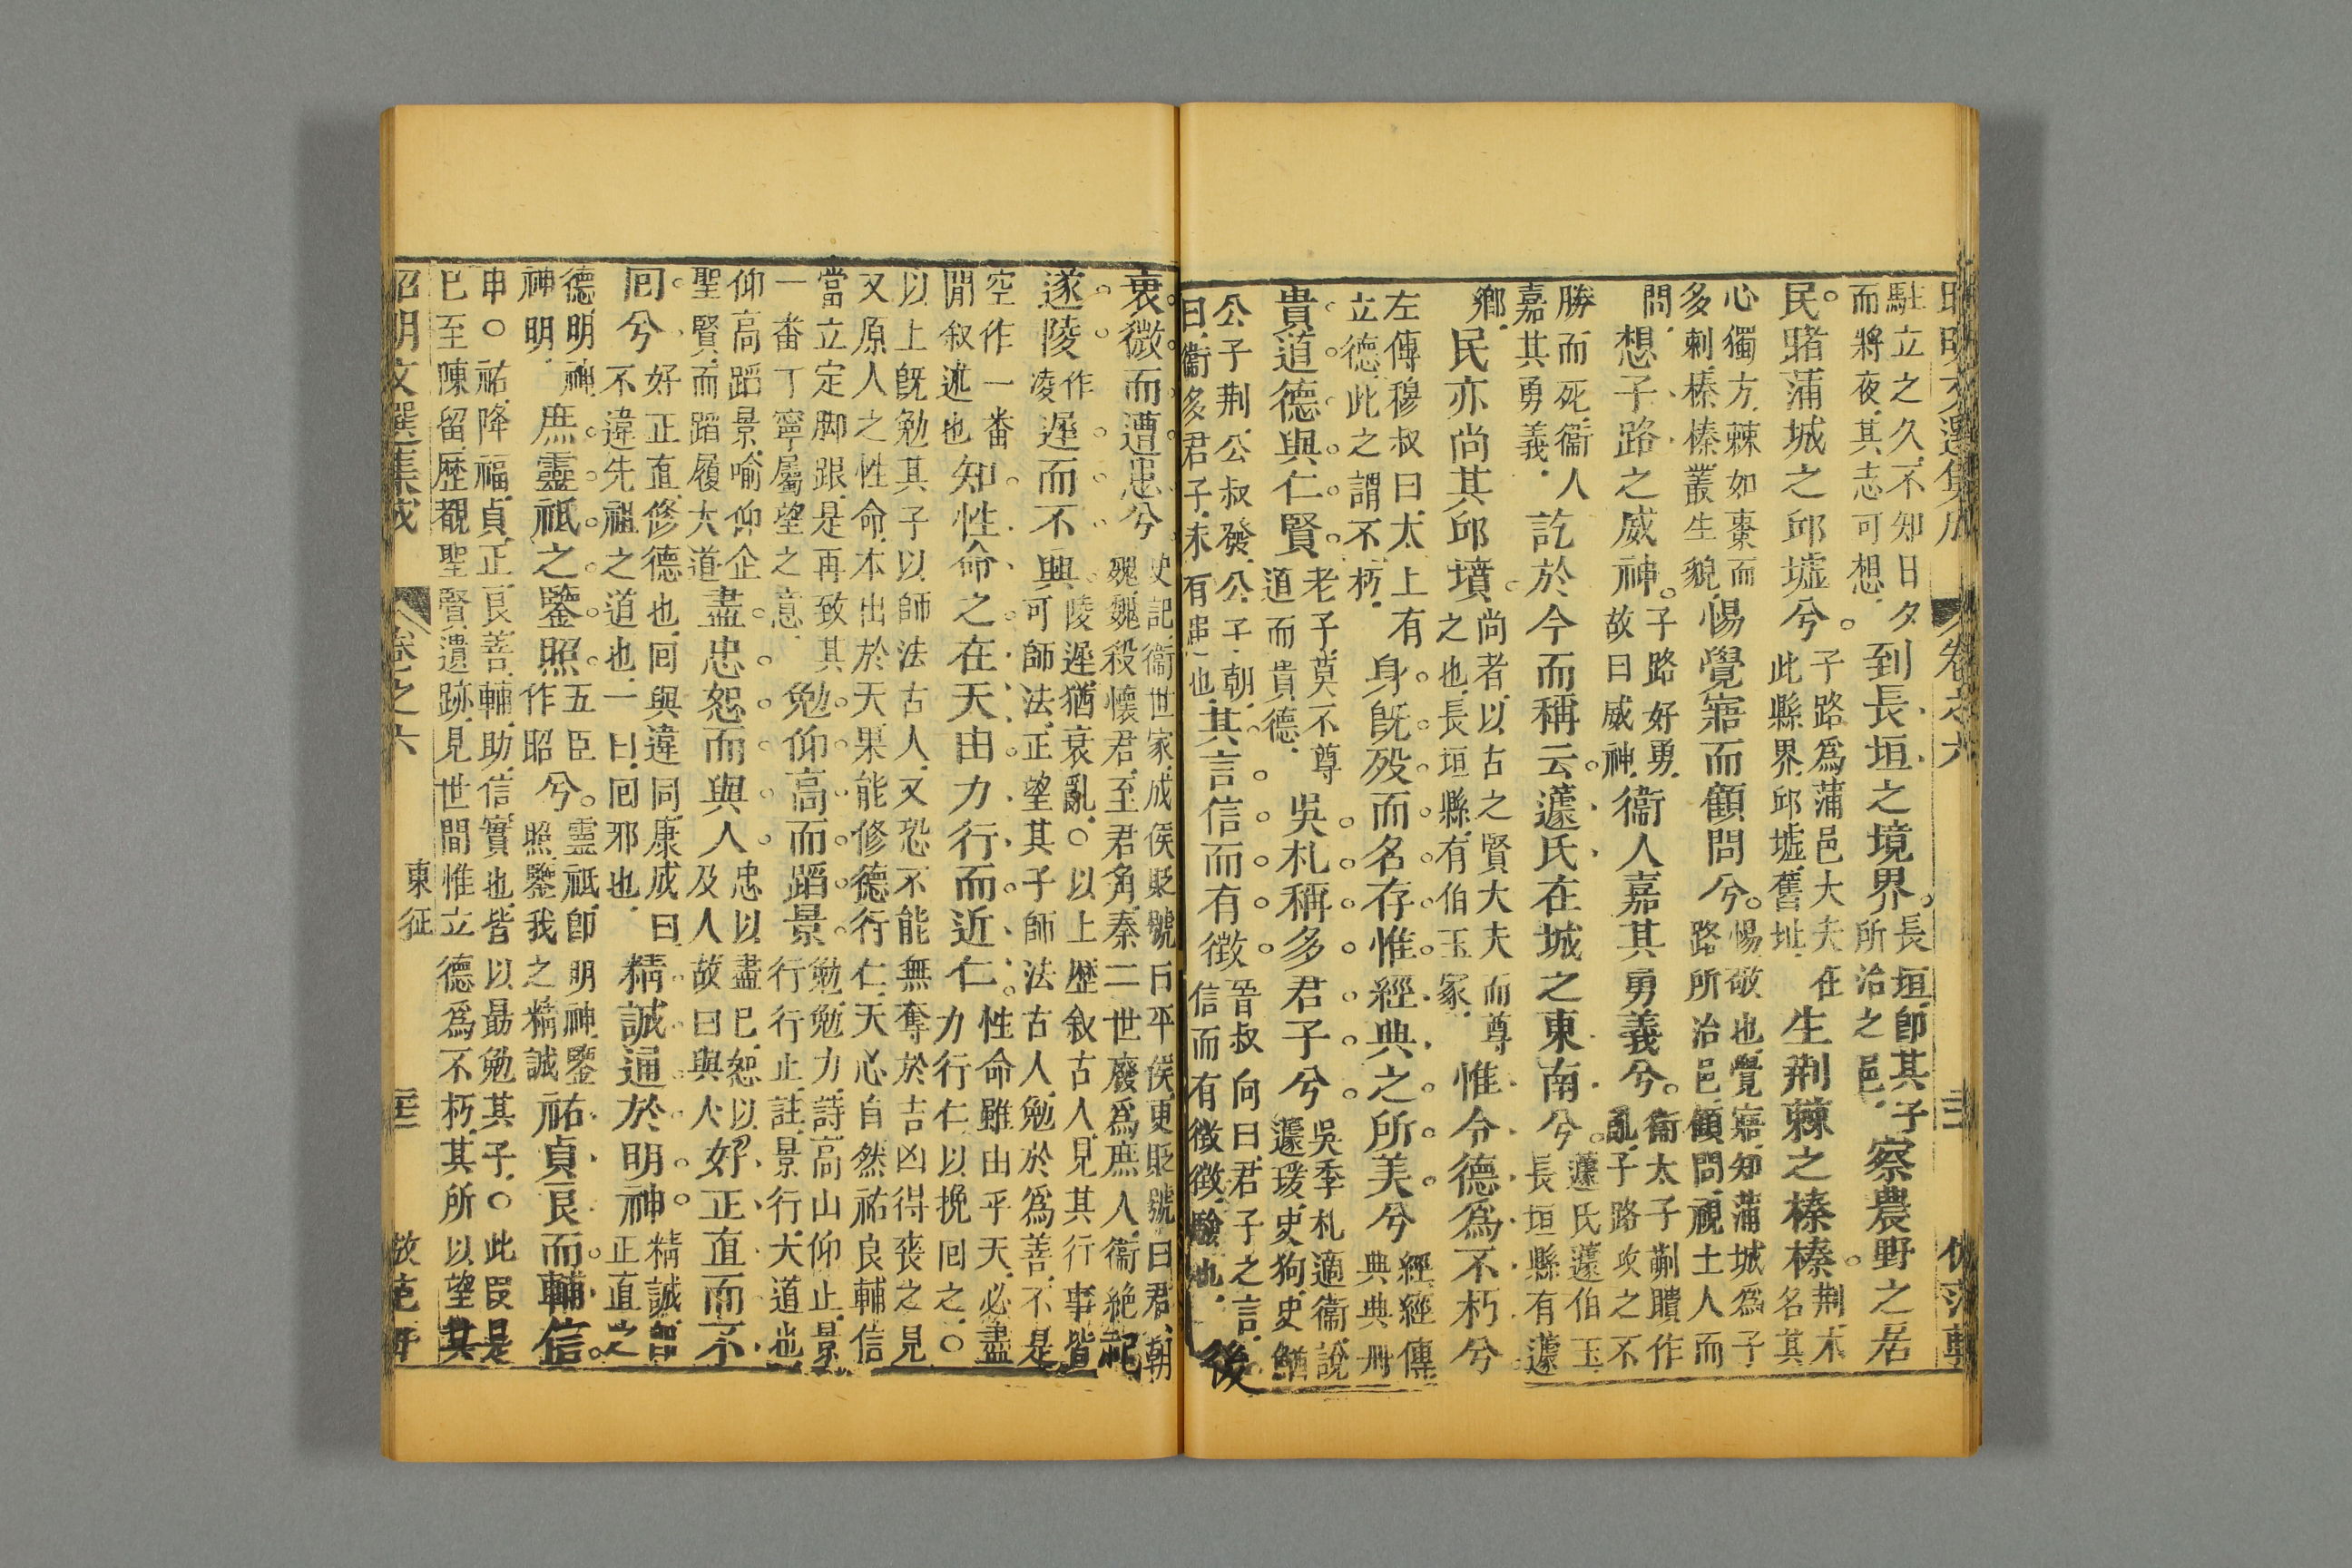 駐立之久不知日夕
而將夜其志可想
到長垣之境界
長垣卽其子
所治之邑
察農野之居
民睹蒲城之邱墟兮
子路爲蒲邑大夫在
此縣界邱墟舊址
生荆棘之榛榛
荆木
名其
心獨方棘如棗而
多刺榛榛叢生貌
惕覺寤而顧問兮
惕敬也覺寤知蒲城爲子
路所治邑顧問視士人而
問
想子路之威神
子路好勇
故曰威神
衞人嘉其勇義兮
衞太子蒯聵作
亂子路攻之不
勝而死衞人
嘉其勇義
訖於今而稱云蘧氏在城之東南兮
蘧氏蘧伯玉
長垣縣有蘧
鄉
民亦尚其邱墳
尚者以古之賢大夫而尊
之也長垣縣有伯玉冢
惟令德爲不朽兮
左傳穆叔曰太上有
立德此之謂不朽
身旣歿而名存惟經典之所美兮
經經傳
典典冊
貴道德與仁賢
老子莫不尊
道而貴德
吳札稱多君子兮
吳季札適衞說
蘧瑗史狗史鰌
公子荆公叔發公子朝
曰衞多君子未有患也
其言信而有徵
晉叔向曰君子之言
信而有徵徵驗也
後
衰微而遭患兮
史記衞世家成侯貶號曰平侯更貶號曰君朝
魏魏殺懷君至君角秦二世廢爲庶人衞絶祀
遂陵
作
凌
遲而不興
陵遲猶衰亂○以上歷敘古人見其行事皆
可師法正望其子師法古人勉於爲善不是
空作一番
閒叙述也
知性命之在天由力行而近仁
性命雖由乎天必盡
力行仁以挽囘之○
以上旣勉其子以師法古人又恐不能無奪於吉凶得喪之見
又原人之性命本出於天果能修德行仁天心自然祐良輔信
當立定脚跟是再致其
一番丁寧屬望之意
勉仰高而蹈景
勉勉力詩高山仰止景
行行止註景行大道也
仰高蹈景喻仰企
聖賢而蹈履大道
盡忠恕而與人
忠以盡己恕以
及人故曰與人
好正直而不
囘兮
好正直修德也囘與違同康成曰
不違先祖之道也一曰囘邪也
精誠通於明神
精誠智
正直之
德明神
神明
庶靈祇之鑒照
五臣
作昭
兮
靈祇卽明神鑒
照鑒我之精誠
祐貞良而輔信
申○祐降福貞正良善輔助信實也皆以勗勉其子○此段是
巳至陳留歷覩聖賢遺跡見世間惟立德爲不朽其所以望其
昭明文選集成
卷之六
東征